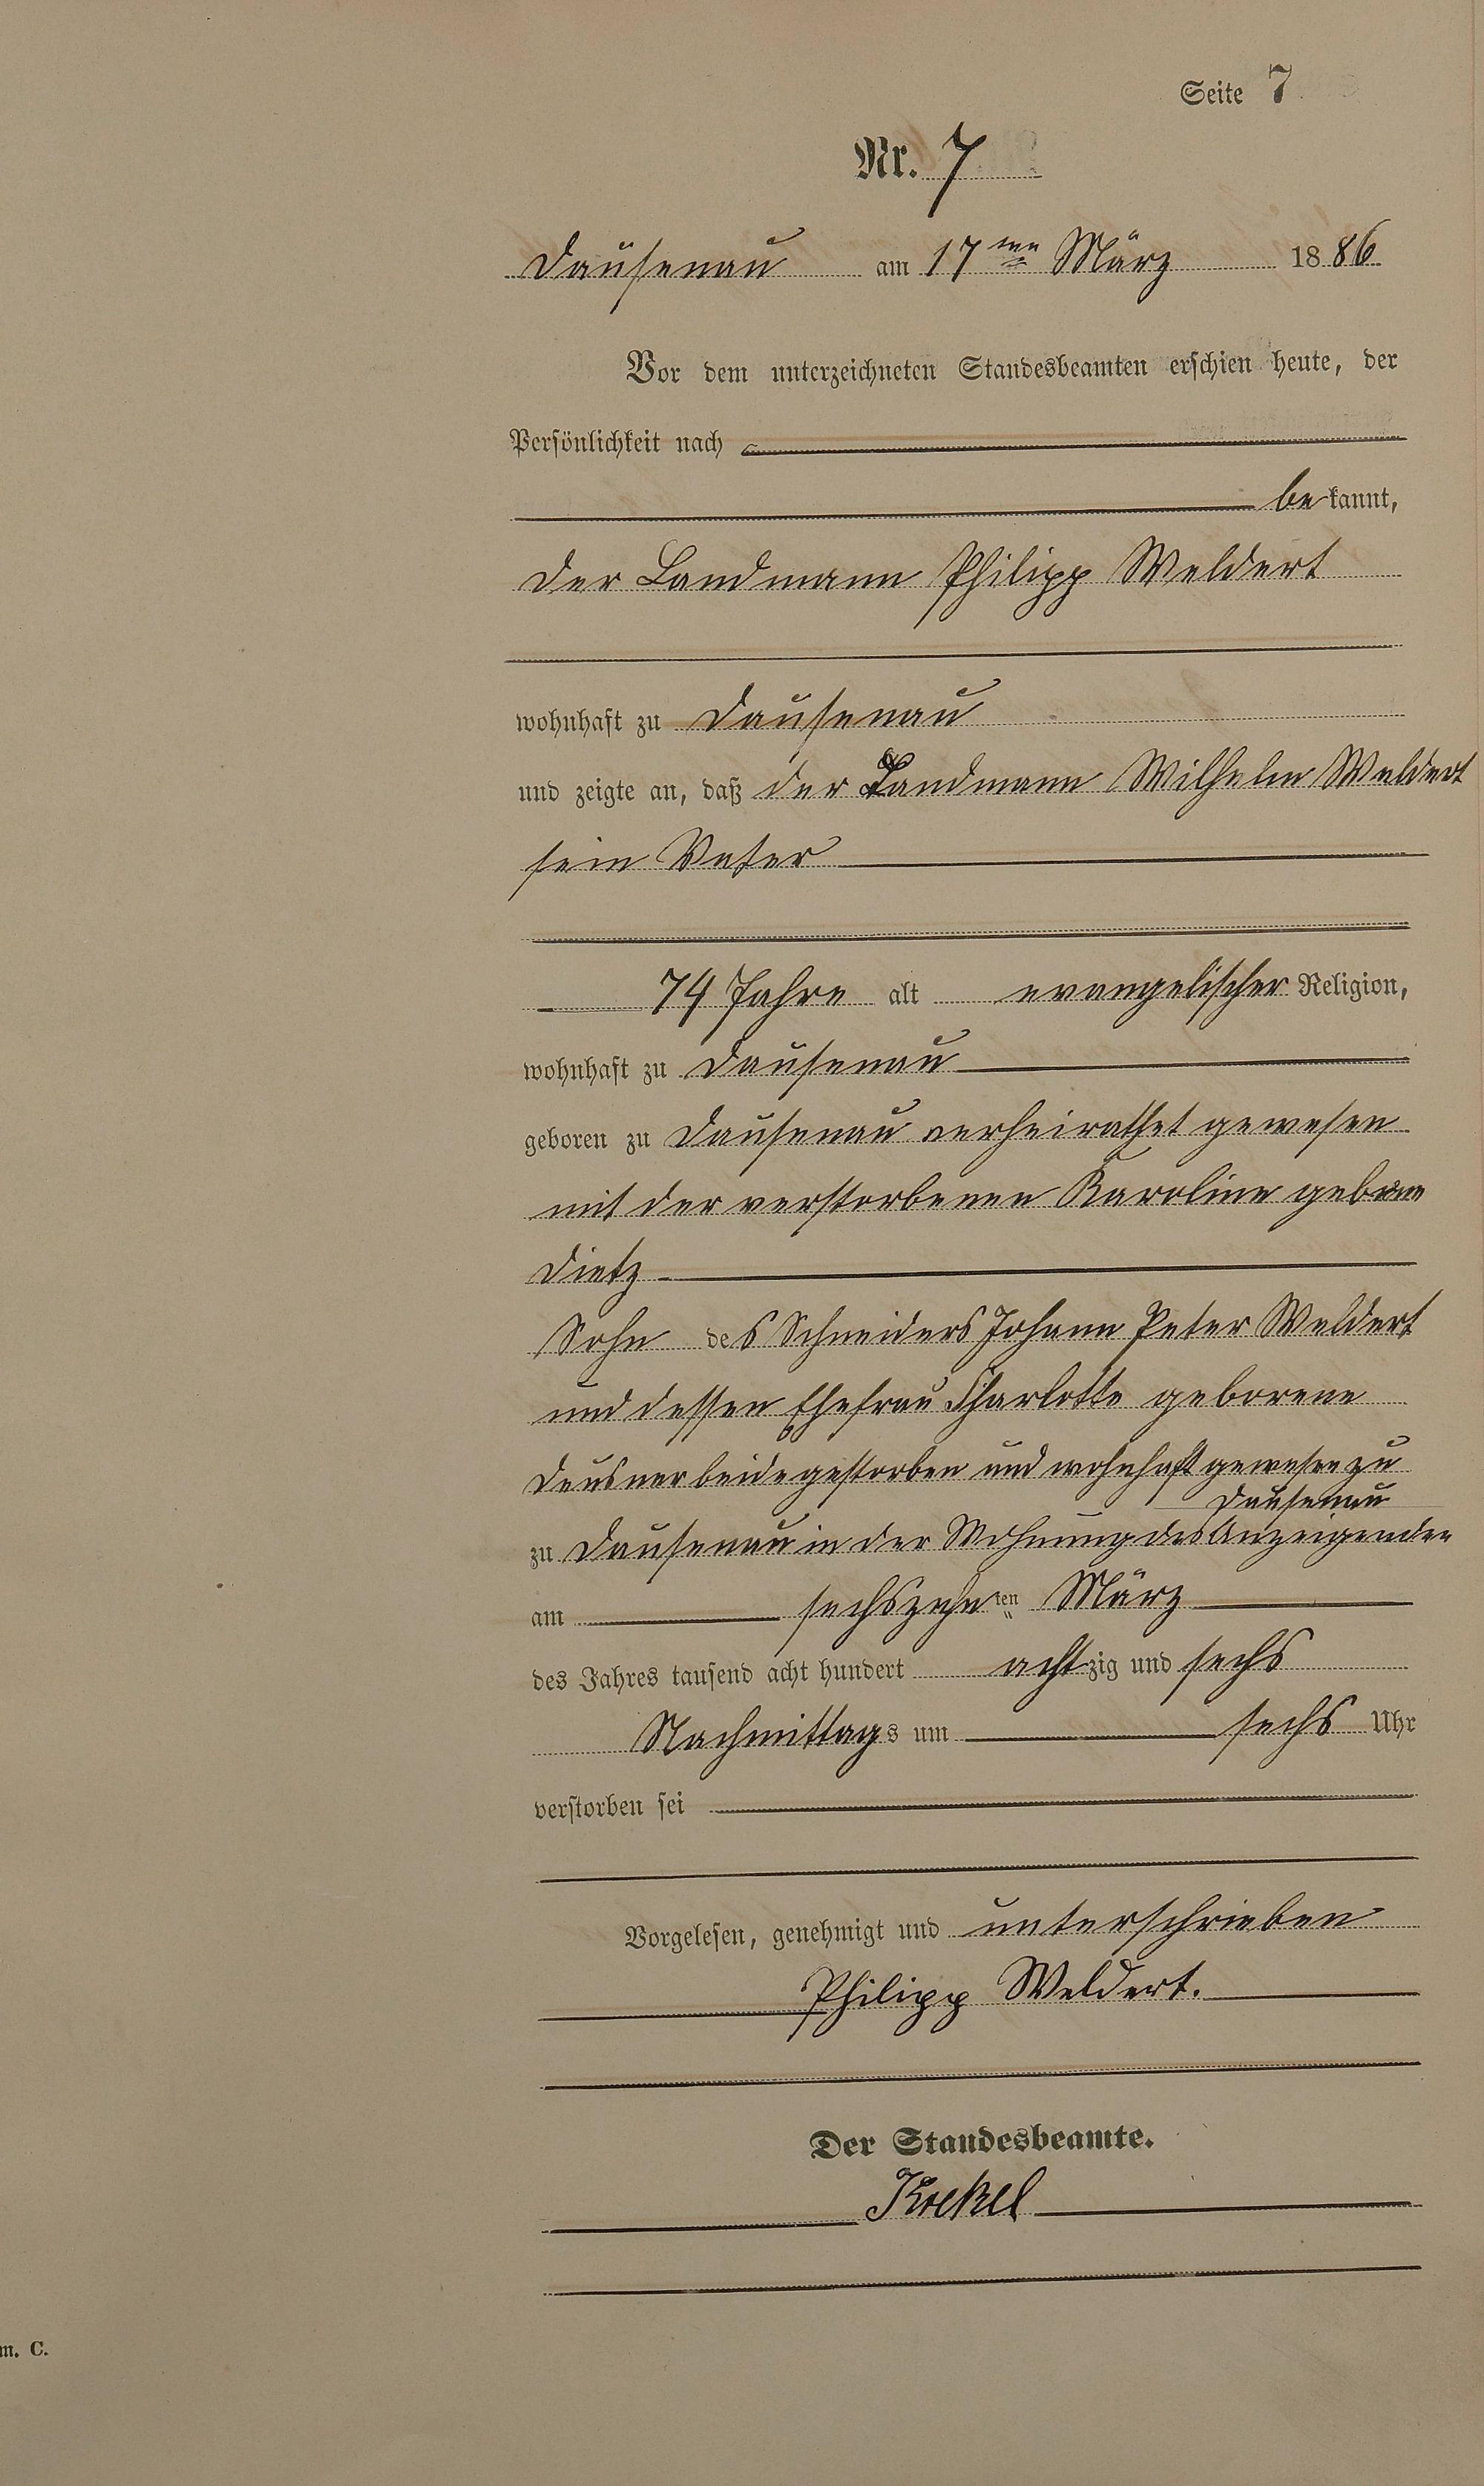 Seite 7
Nr. 7
Dausenau am 17ten März 1886
Vor dem unterzeichneten Standesbeamten erschien heute, der
Persönlichkeit nach
bekannt,
der Landmann Philipp Weldert
wohnhaft zu Dausenau
und zeigte an, daß der Landmann Wilhelm Weldert
sein Vater
74 Jahre alt evangelischer Religion,
wohnhaft zu Dausenau
geboren zu Dausenau verheirathet gewesen
mit der verstorbenen Karoline geborene
Dietz
Sohn des Schneiders Johann Peter Weldert
und dessen Ehefrau Charlotte geborene
Deusner beide gestorben und wohnhaft gewesen zu
Dausenau
zu Dausenau in der Wohnung des Anzeigenden
am sechszehnten März
des Jahres tausend acht hundert achtzig und sechs
Nachmittags um sechs Uhr
verstorben sei
Vorgelesen, genehmigt und unterschrieben
Philipp Weldert.
Der Standesbeamte.
m. C.